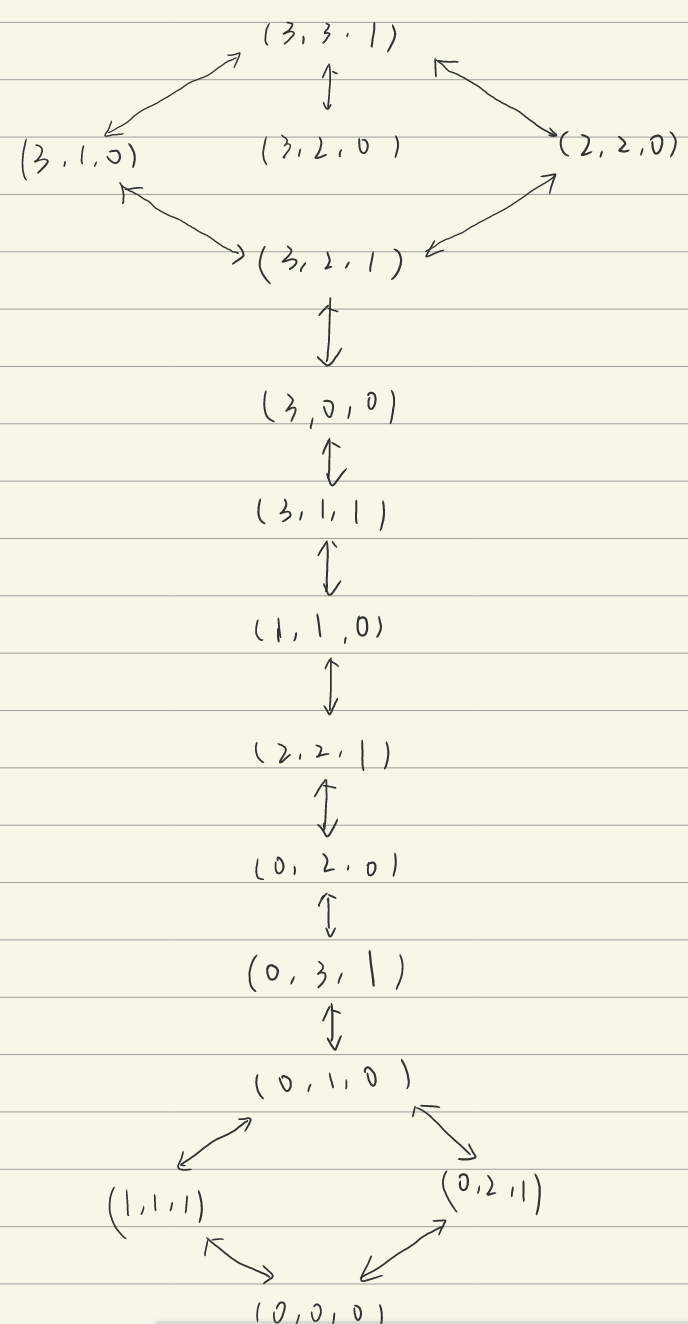 (3, 3, 1)
(3, 1, 0) (3, 2, 0) (2, 2, 0)
(3, 2, 1)
(3, 0, 0)
(3, 1, 1)
(1, 1, 0)
(2, 2, 1)
(0, 2, 0)
(0, 3, 1)
(0, 1, 0)
(1, 1, 1) (0, 2, 1)
(0, 0, 0)